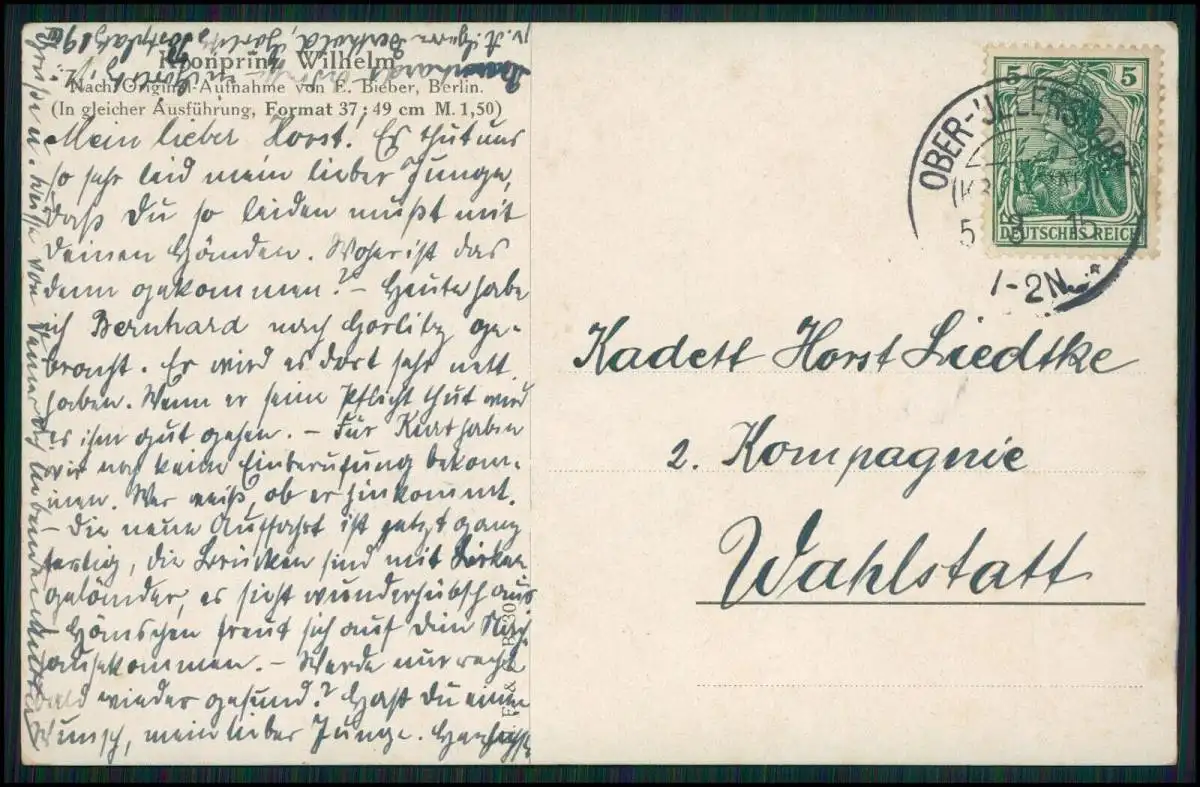 Kronprinz Wilhelm
Nach Original-Aufnahme von E. Bieber, Berlin.
(In gleicher Ausführung, Format 37 : 49 cm M. 1,50)
Mein lieber Horst! Es thut uns
so sehr leid mein lieber Junge,
daß Du so leiden mußt mit
Deinen Händen. Woher ist das
denn gekommen? – Heute habe
ich Bernhard nach Görlitz ge-
bracht. Er wird es dort sehr nett
haben. Wenn er seine Pflicht thut wird
es ihm gut gehen. – Für Kurt haben
wir noch keine Einberufung bekom-
men. Wer weiß, ob er hinkommt.
– Die neue Auffahrt ist jetzt ganz
fertig, die Brücken sind mit Birken
geländer, es sieht wunderhübsch aus
Hänschen freut sich auf Dein Nach
hausekommen. – Werde nur recht
bald wieder gesund? Hast Du einen
Wunsch, mein lieber Junge. Herzliche
Grüße u. Küsse von Deiner Dich liebenden Mutter
Bernhards
Görlitz
Postplatz 19
OBER-ULLERSDORF
5 8 15
1-2N.
5 5
DEUTSCHES REICH
Kadett Horst Liedtke
2. Kompagnie
Wahlstatt